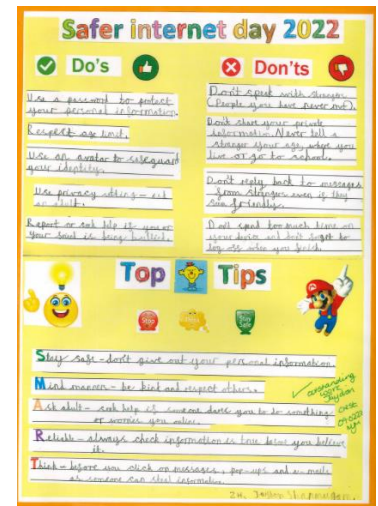 Safer internet day 2022
Do's
Don'ts
Use a password to protect
your personal information.
Respect age limit.
Use an avatar to safeguard
your identity.
Use privacy setting
an adult.
Report or seek help if you or
your friend is being bullied.
Don't speak with stranger
(People you have never met).
Don't share your private
information. Never tell a
stranger your age, where you
live or go to school.
Don't reply back to messages
from strangers even if they
friendly.
Don't spend too much time on
your device and don't forget to
log off when you finish.
Top Tips
Stay safe - don't give out your personal information.
Mind manners - be kind and respect others.
Ask adult - seek help if someone dares you to do something
or worries you online.
Reliable - always check information is true before you believe
it.
Think - before you click on messages, pop-ups and e-mails
as someone can steal information.
Outstanding